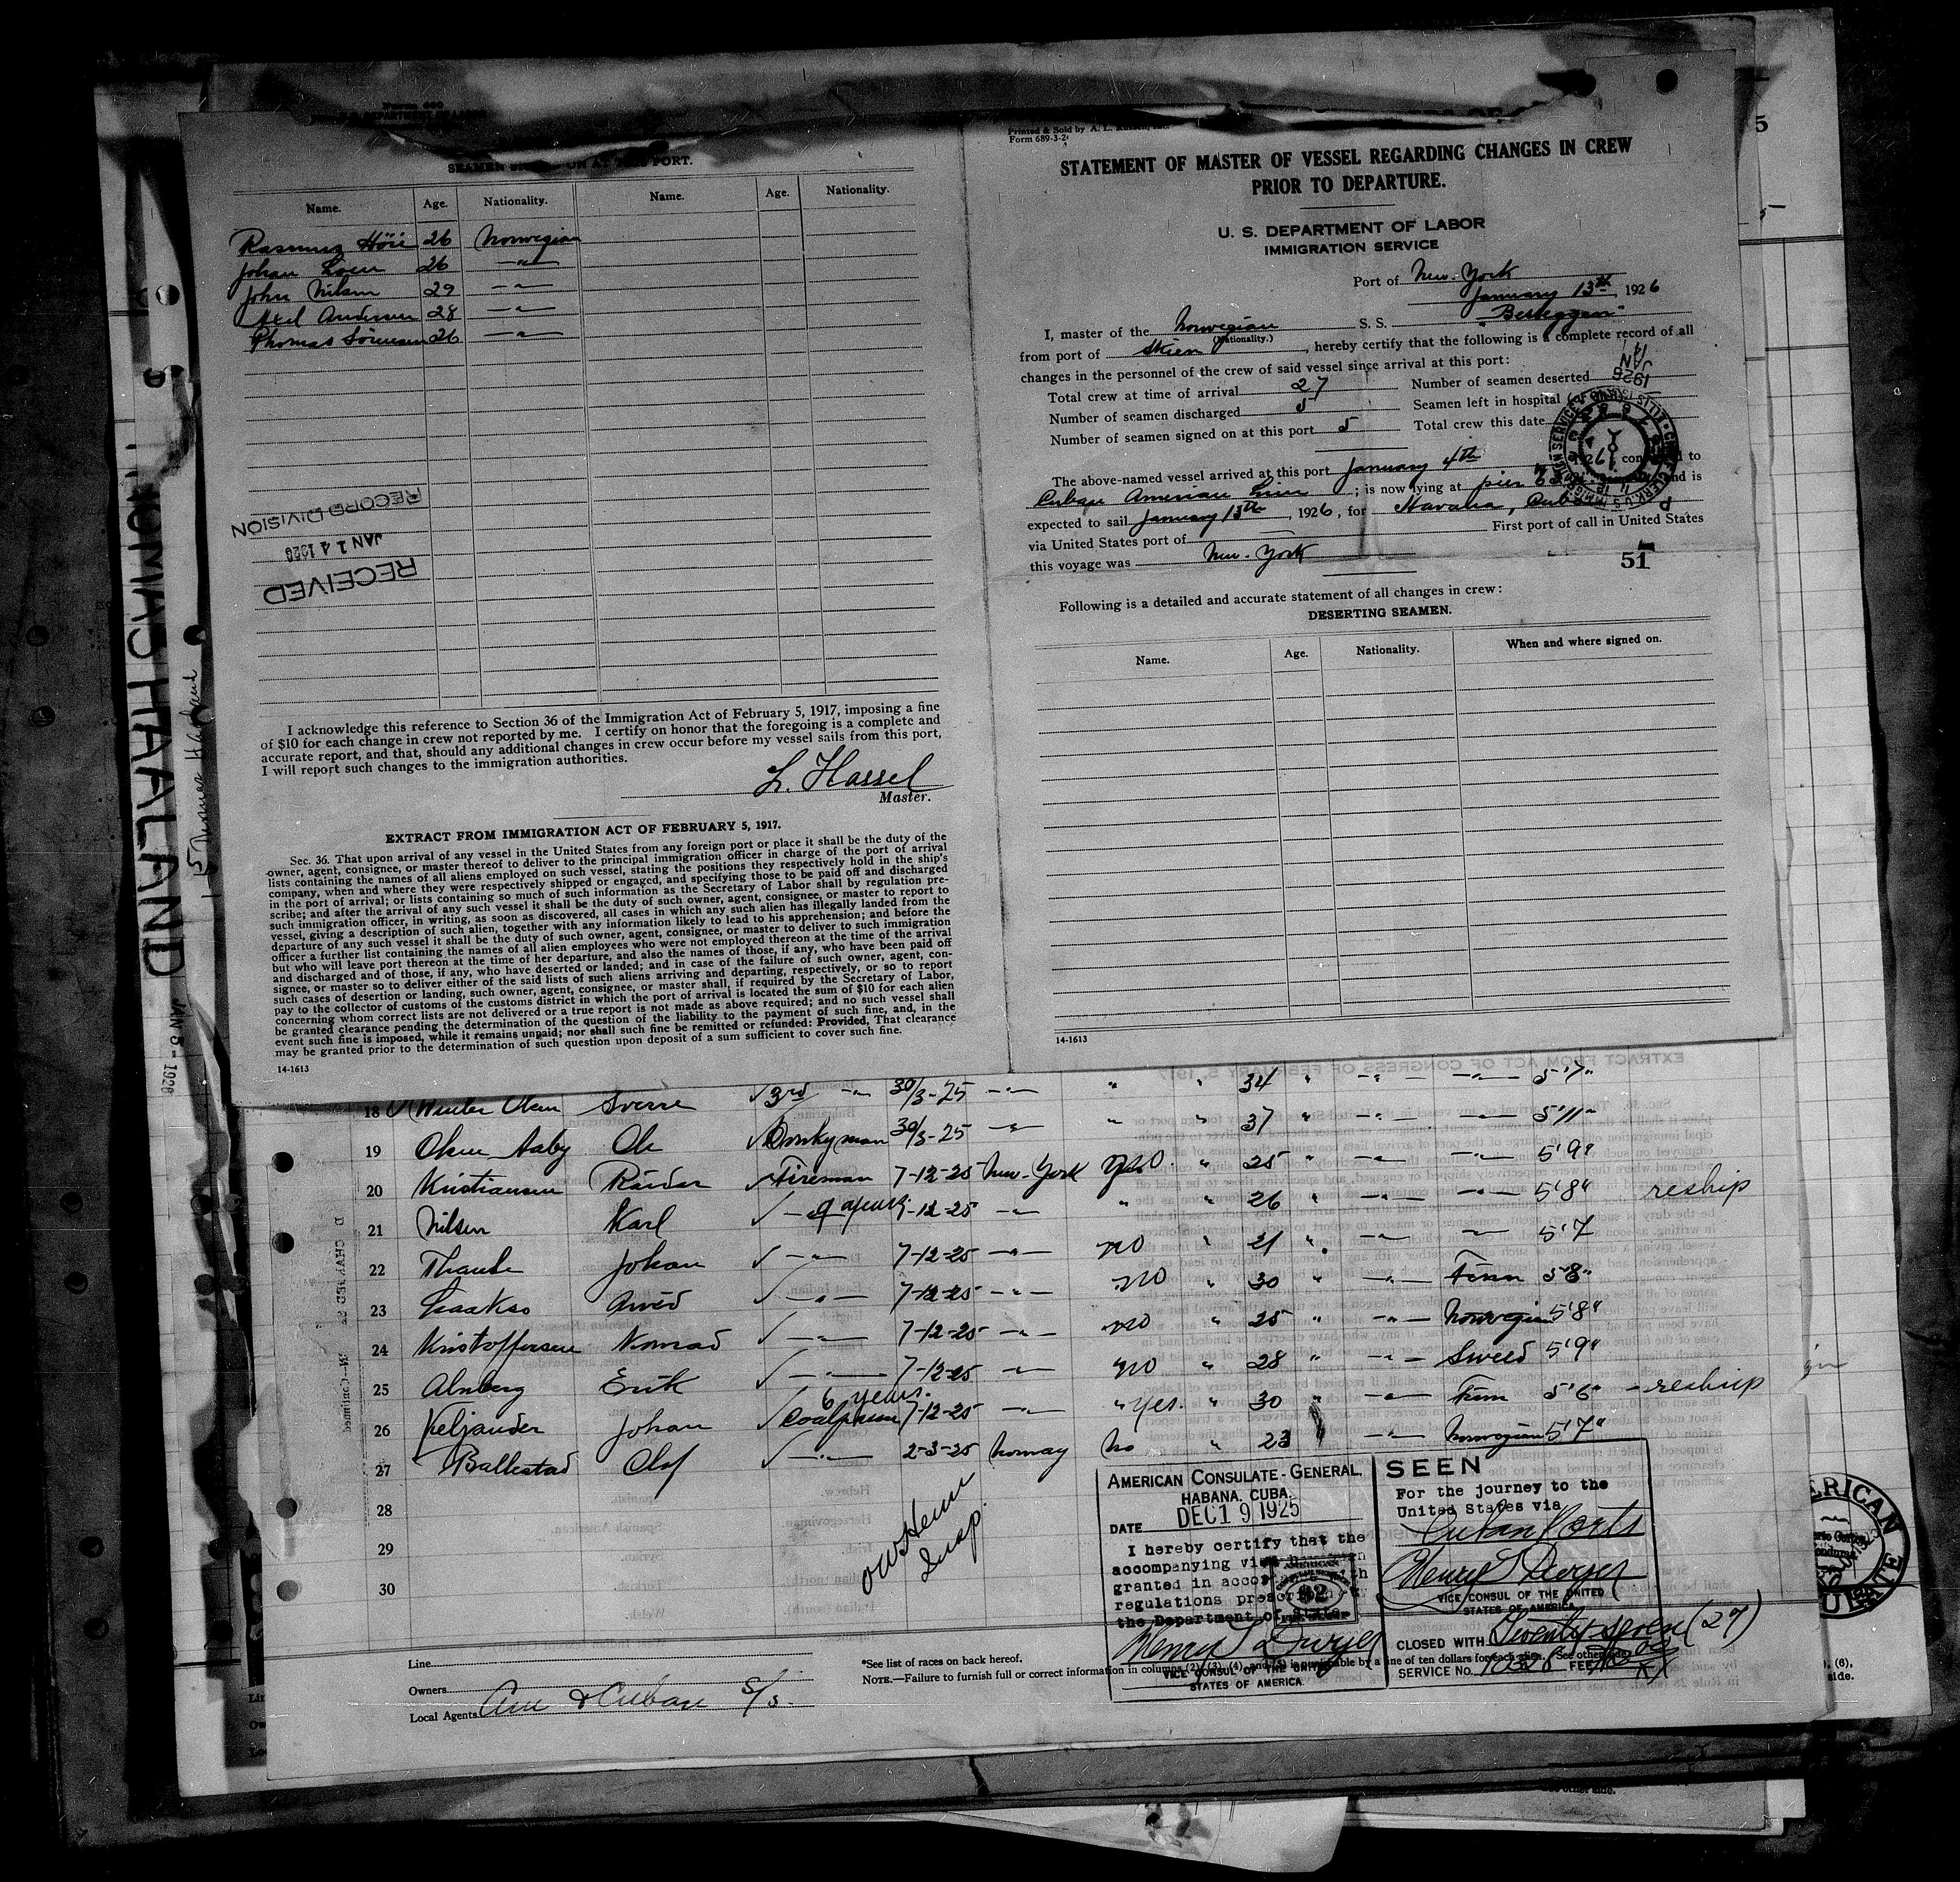 SEAMEN ON AT PORT.
Name. Age. Nationality. Name. Age. Nationality.
Rasmus 26 Norwegian
Johan Loen 26 —"—
John Nilsen 29 —"—
Axel Andersen 28 —"—
Thomas Sörensen 26 —"—
RECORD DIVISION
JAN 14 1926
RECEIVED
I acknowledge this reference to Section 36 of the Immigration Act of February 5, 1917, imposing a fine
of $10 for each change in crew not reported by me. I certify on honor that the foregoing is a complete and
accurate report, and that, should any additional changes in crew occur before my vessel sails from this port,
I will report such changes to the immigration authorities.
L. Hassel
Master.
EXTRACT FROM IMMIGRATION ACT OF FEBRUARY 5, 1917.
Sec. 36. That upon arrival of any vessel in the United States from any foreign port or place it shall be the duty of the
owner, agent, consignee, or master thereof to deliver to the principal immigration officer in charge of the port of arrival
lists containing the names of all aliens employed on such vessel, stating the positions they respectively hold in the ship's
company, when and where they were respectively shipped or engaged, and specifying those to be paid off and discharged
in the port of arrival; or lists containing so much of such information as the Secretary of Labor shall by regulation pre-
scribe; and after the arrival of any such vessel it shall be the duty of such owner, agent, consignee, or master to report to
such immigration officer, in writing, as soon as discovered, all cases in which any such alien has illegally landed from the
vessel, giving a description of such alien, together with any information likely to lead to his apprehension; and before the
departure of any such vessel it shall be the duty of such owner, agent, consignee, or master to deliver to such immigration
officer a further list containing the names of all alien employees who were not employed thereon at the time of the arrival
but who will leave port thereon at the time of her departure, and also the names of those, if any, who have been paid off
and discharged and of those, if any, who have deserted or landed; and in case of the failure of such owner, agent, con-
signee, or master so to deliver either of the said lists of such aliens arriving and departing, respectively, or so to report
such cases of desertion or landing, such owner, agent, consignee, or master shall, if required by the Secretary of Labor,
pay to the collector of customs of the customs district in which the port of arrival is located the sum of $10 for each alien
concerning whom correct lists are not delivered or a true report is not made as above required; and no such vessel shall
be granted clearance pending the determination of the question of the liability to the payment of such fine, and, in the
event such fine is imposed, while it remains unpaid; nor shall such fine be remitted or refunded: Provided, That clearance
may be granted prior to the determination of such question upon deposit of a sum sufficient to cover such fine.
14-1613
Printed & Sold by A. L.
Form 689-3-2
STATEMENT OF MASTER OF VESSEL REGARDING CHANGES IN CREW
PRIOR TO DEPARTURE.
U. S. DEPARTMENT OF LABOR
IMMIGRATION SERVICE
Port of New-York
January 13th, 1926
I, master of the Norwegian S. S. "Besseggen"
(Nationality.)
from port of Skien, hereby certify that the following is a complete record of all
changes in the personnel of the crew of said vessel since arrival at this port:
Total crew at time of arrival 27 Number of seamen deserted
Number of seamen discharged 5 Seamen left in hospital
Number of seamen signed on at this port 5 Total crew this date
JAN 14 1926
The above-named vessel arrived at this port January 4th to
Cuban American Line; is now lying at pier and is
expected to sail January 13th, 1926, for Havana, Cuba
via United States port of First port of call in United States
this voyage was New-York
51
Following is a detailed and accurate statement of all changes in crew:
DESERTING SEAMEN.
Name. Age. Nationality. When and where signed on.
14-1613
THOMAS HAALAND
JAN 5- 1926
18 Winter Olsen Sverre 3rd —"— 30/3-25 —"— " " 34 " —"— —"— 5'7"
19 Olsen Aaby Ole Donkyman 30/3-25 —"— " " 37 " —"— —"— 5'11"
20 Kristiansen Reidar Fireman 7-12-25 New-York no " 25 " —"— —"— 5'9"
21 Nilsen Karl —"— 9 years 7-12-25 —"— " " 26 " —"— —"— 5'8" reship
22 Johan —"— 7-12-25 —"— no " 21 " —"— —"— 5'7
23 Isakso Arvid —"— 7-12-25 —"— no " 30 " —"— Finn 5'8"
24 Kristoffersen Konrad —"— 7-12-25 —"— no " 25 " —"— Norwegian 5'8"
25 Alnberg Erik —"— 7-12-25 —"— no " 28 " —"— Sweed 5'9"
26 Keljander Johan 6 years. Coalpasser 7-12-25 —"— " Yes. " 30 " —"— Finn 5'6" - reship
27 Ballestad Olaf —"— 2-3-25 Norway No " 23 —"— Norwegian 5'7"
28
29
30
Insp.
AMERICAN CONSULATE-GENERAL,
HABANA, CUBA.
DATE DEC 19 1925
I hereby certify that the
accompanying visa has been
granted in accordance with
regulations prescribed
the Department of State.
Henry T. Dwyer
VICE CONSUL OF THE UNITED
STATES OF AMERICA.
SEEN
For the journey to the
United States via
Cuban Ports
Henry T. Dwyer
VICE CONSUL OF THE UNITED
STATES OF AMERICA
CLOSED WITH Twenty seven (27)
SERVICE No. 10328 FEE
Line
Owners
Local Agents Am & Cuban S/S.
*See list of races on back hereof.
NOTE.—Failure to furnish full or correct information in columns (2), (3), (4), and (5) is punishable by a fine of ten dollars for each alien. See other side.